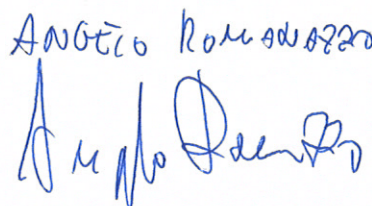 ANGELO ROMANAZZO
Angelo Romanazzo